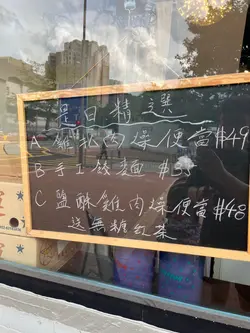 是日精選
A 雞扒肉燥便當 $49
B 手工餃麵 $35
C 鹽酥雞肉燥便當 $48
送無糖紅茶